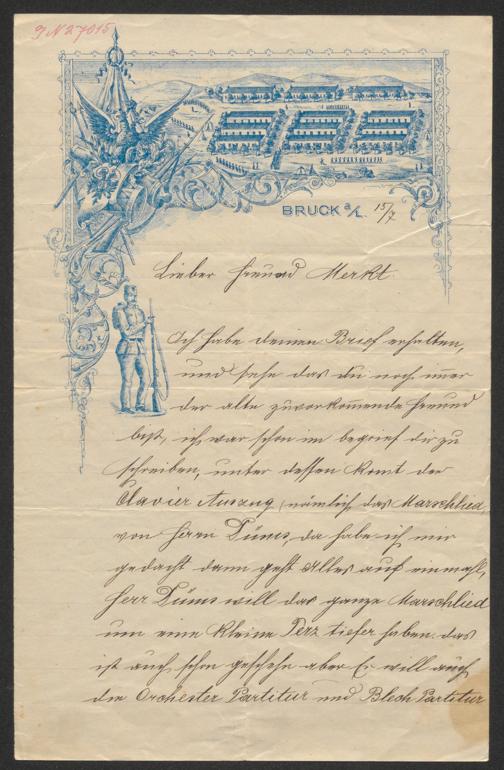 J N 27015
BRUCK a/L. 15/7
Lieber Freund Merkt.
Ich habe deinen Brief erhalten,
und sehe das du noch imer
der alte zuvorkomende Freund
bist, ich war schon im begrief dir zu
schreiben, unter dessen komt der
Clavier Auszug (nömlich das Marschlied,
von Herrn Düms, da habe ich mir
gedacht dann geht Alles auf einmahl,
Herr Düms will das ganze Marschlied
um eine kleine Terz tiefer haben das
ist auch schon geschehn aber Er will auch
die Orchester Partitur und Blech Partitur